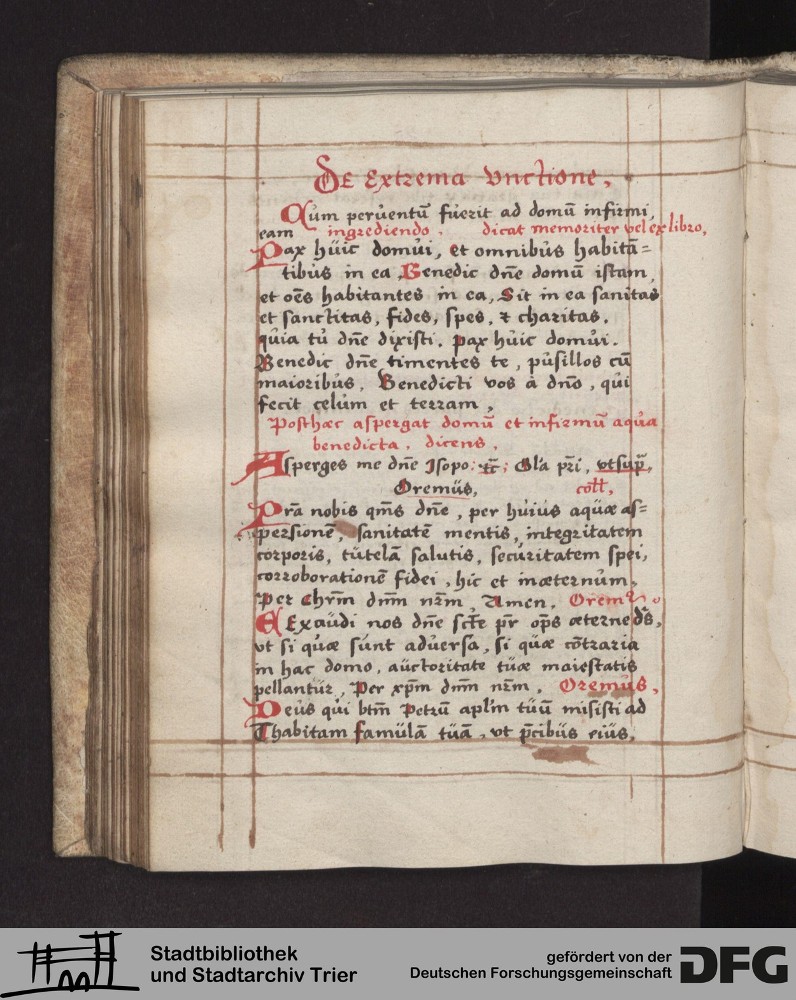 De Extrema Vnctione.
Cům perůentū fůerit ad domū infirmi,
eam ingrediendo. dicat memoriter vel ex libro,
Pax hůic domůi, et omnibůs habitā=
tibůs in ea. Benedic dn̄e domū istam,
et oēs habitantes in ea, Sit in ea sanitas
et sanctitas, fides, spes, & charitas.
qůia tů dn̄e dixisti. pax hůic domůi.
Benedic dn̄e timentes te, půsillos cū
maioribůs, Benedicti vos ā dn̄o, qůi
fecit celům et terram,
Posthæc aspergat domū et infirmū aqůa
benedicta, dicens,
Asperges me dn̄e Isopo: &c̄; Gl'a pr̄i, vtsup̄,
Oremůs, coll̄,
Prā nobis qm̄s dn̄e, per hůiůs aqůæ as=
persionē, sanitatē mentis, integritatem
corporis, tůtelā salutis, secůritatem spei,
corroborationē fidei, hic et inæternům,
Per Chrm̄ dnm̄ nr̄m, Amen. Orem9
Exaůdi nos dn̄e sct̄e pr̄ op̄s æterne ds̄,
vt si qůæ sůnt adůersa, si qůæ cōtraria
in hac domo, aůctoritate tůæ maiestatis
pellantůr, Per xpm̄ dnm̄ nr̄m, Oremůs,
Deůs qůi btm̄ Petrū apl'm tůū misisti ad
Thabitam famůlā tůā, vt p̄cibůs eiůs,
Stadtbibliothek
und Stadtarchiv Trier
gefördert von der
Deutschen Forschungsgemeinschaft
DFG